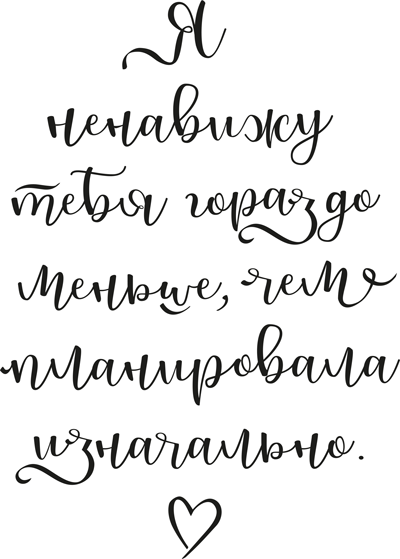 Я
ненавижу
тебя гораздо
меньше, чем
планировала
изначально.